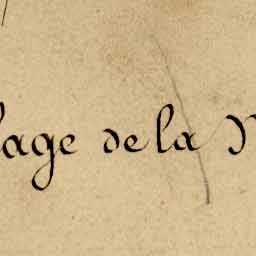 lage de la